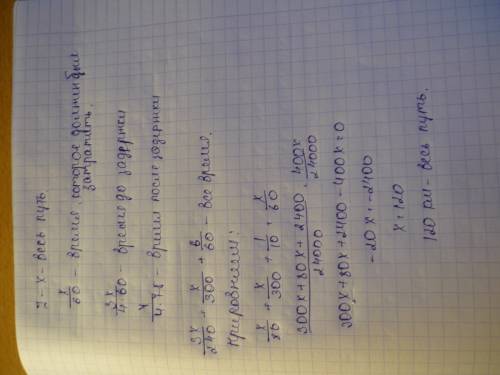 x - весь путь
x/60 - время, которое должен был
затратить.
3x/4·60 - время до задержки
x/4·75 - время после задержки
3x/240 + x/300 + 6/60 - все время.
x/80 + x/300 + 1/10 = x/60
300x + 80x + 2400 = 400x
24000 24000
300x + 80x + 2400 - 400x = 0
-20x = -2400
x = 120
120 км - весь путь.